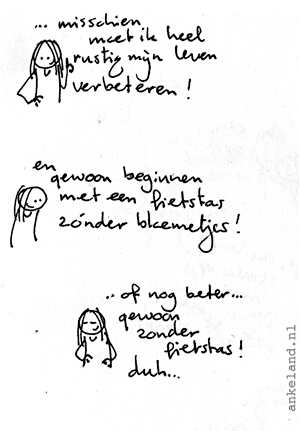 ... misschien
moet ik heel
rustig mijn leven
verbeteren !
en
gewoon beginnen
met een fietstas
zónder bloemetjes !
.. of nog beter...
gewoon
zonder
fietstas !
duh...
ankeland.nl